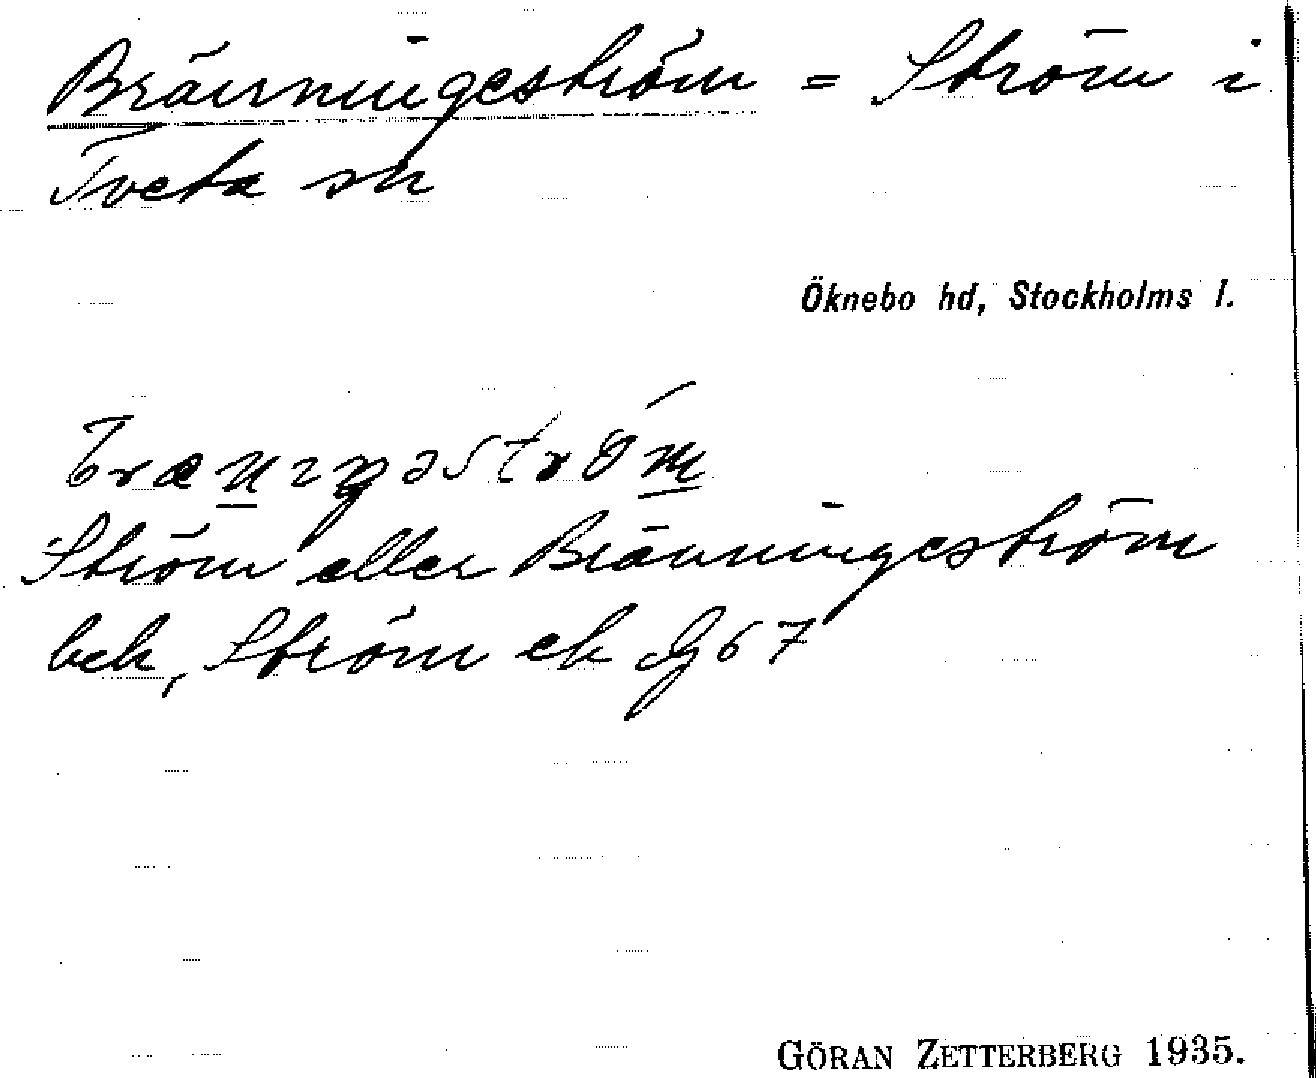 Bränningeström = Ström i
Tveta sn
Öknebo hd, Stockholms l.
brænıŋəström
Ström eller Bränningeström
bek, Ström ek Jg 67
GÖRAN ZETTERBERG 1935.